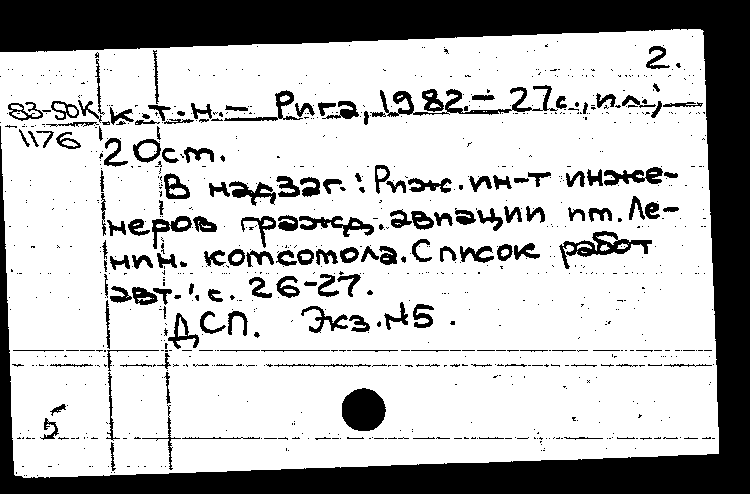 2.
83-50К к.т.н. – Рига, 1982. – 27с., ил.;
1176 20см.
В надзаг.: Риж. ин-т инже-
неров гражд. авиации им. Ле-
нин. комсомола. Список работ
авт.: с. 26-27.
ДСП. Экз. №5.
5